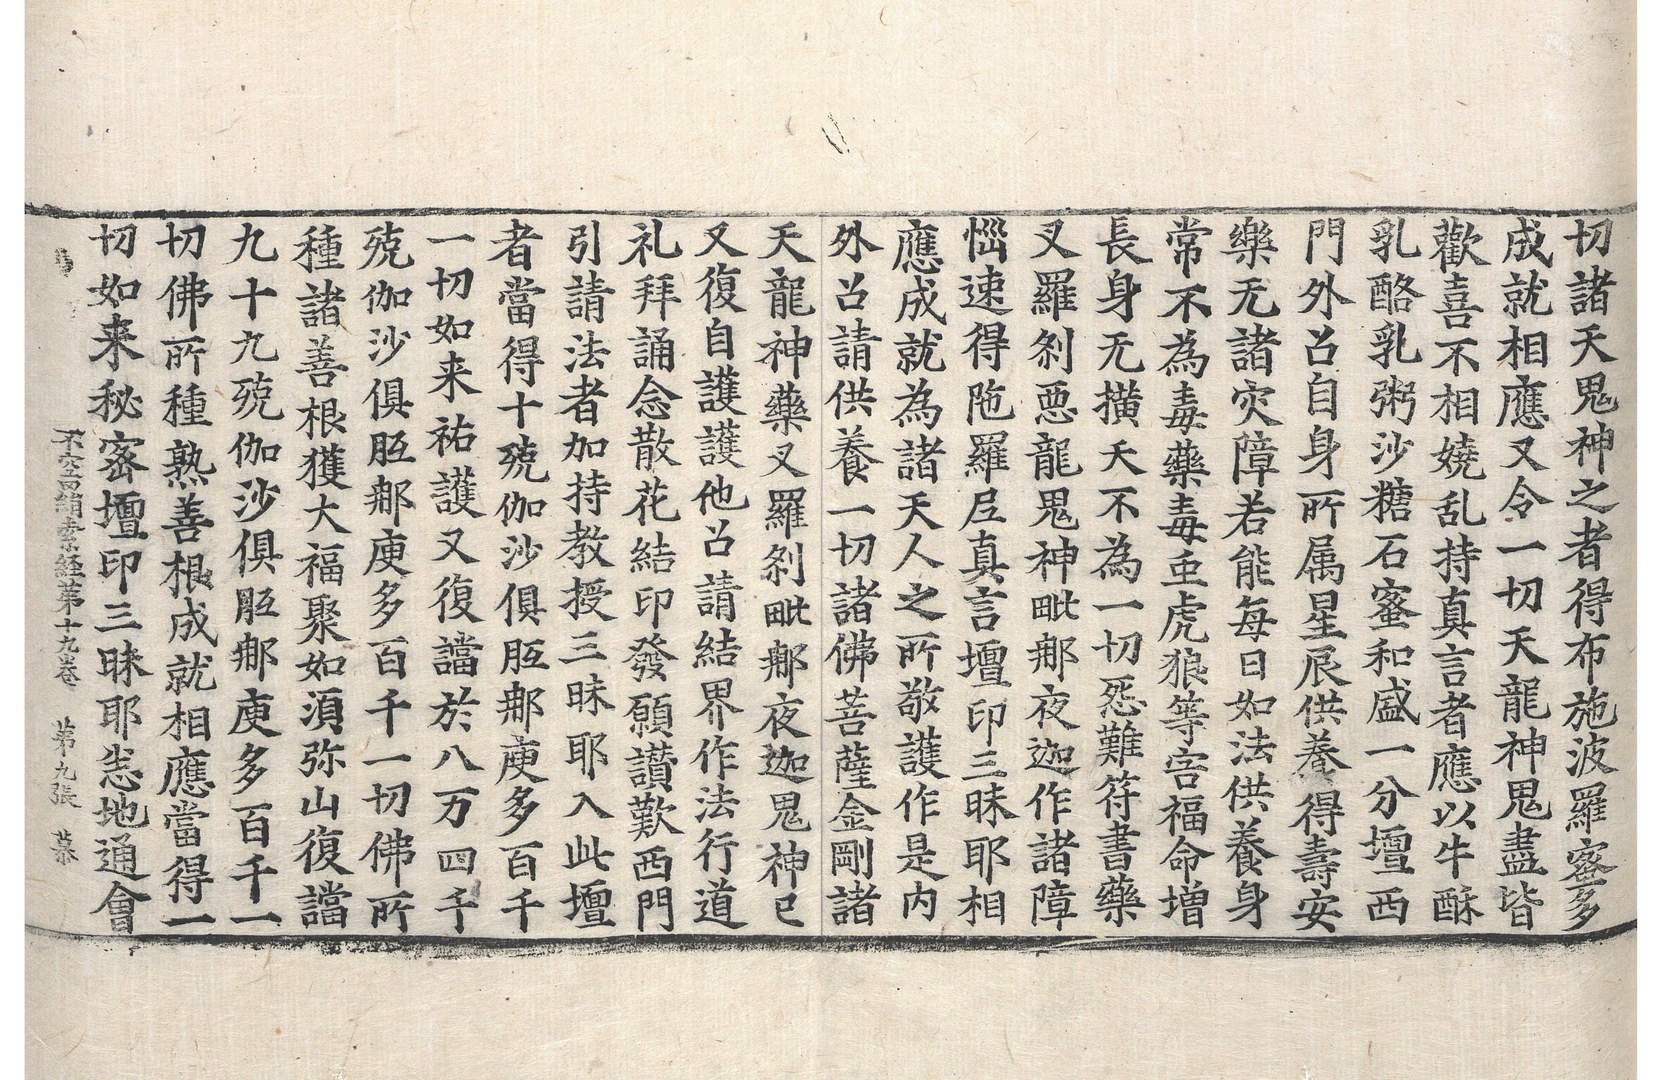 切諸天鬼神之者得布施波羅蜜多
成就相應又令一切天龍神鬼盡皆
歡喜不相嬈乱持真言者應以牛酥
乳酪乳粥沙糖石蜜和盛一分壇西
門外召自身所属星辰供養得壽安
樂无諸灾障若能每日如法供養身
常不為毒藥毒虫虎狼等害福命增
長身无横夭不為一切怨難符書藥
叉羅刹惡龍鬼神毗那夜迦作諸障
惱速得陁羅尼真言壇印三昧耶相
應成就為諸天人之所敬護作是内
外召請供養一切諸佛菩薩金剛諸
天龍神藥叉羅刹毗那夜迦鬼神已
又復自護護他召請結界作法行道
礼拜誦念散花結印發願讃歎西門
引請法者加持教授三昧耶入此壇
者當得十殑伽沙俱胝那庾多百千
一切如来祐護又復譡於八万四千
殑伽沙俱胝那庾多百千一切佛所
種諸善根獲大福聚如湏弥山復譡
九十九殑伽沙俱胝那庾多百千一
切佛所種熟善根成就相應當得一
切如来秘密壇印三昧耶恙地通會
不空羂索経苐十九卷 苐九張 慕